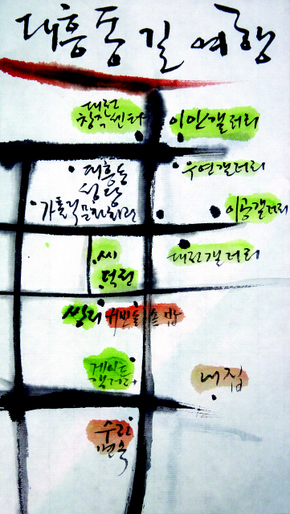 대흥동 길 여행
대전
창작센터
이안갤러리
우연갤러리
대흥동
성당
가톨릭문화회관
이공갤러리
대전갤러리
쌍리
솔밥
게이트
갤러리
내집
수리